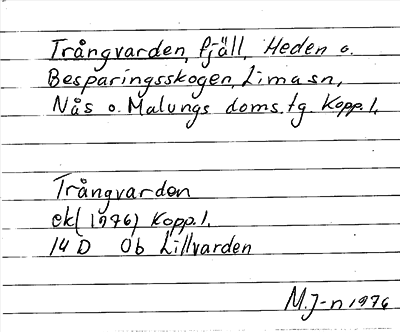 Trångvarden, fjäll, Heden o.
Besparingsskogen, Lima sn,
Nås o. Malungs doms. tg. Kopp. l.
Trångvarden
ek (1976) Kopp. l.
14 D Ob Lillvarden
M.J-n 1976